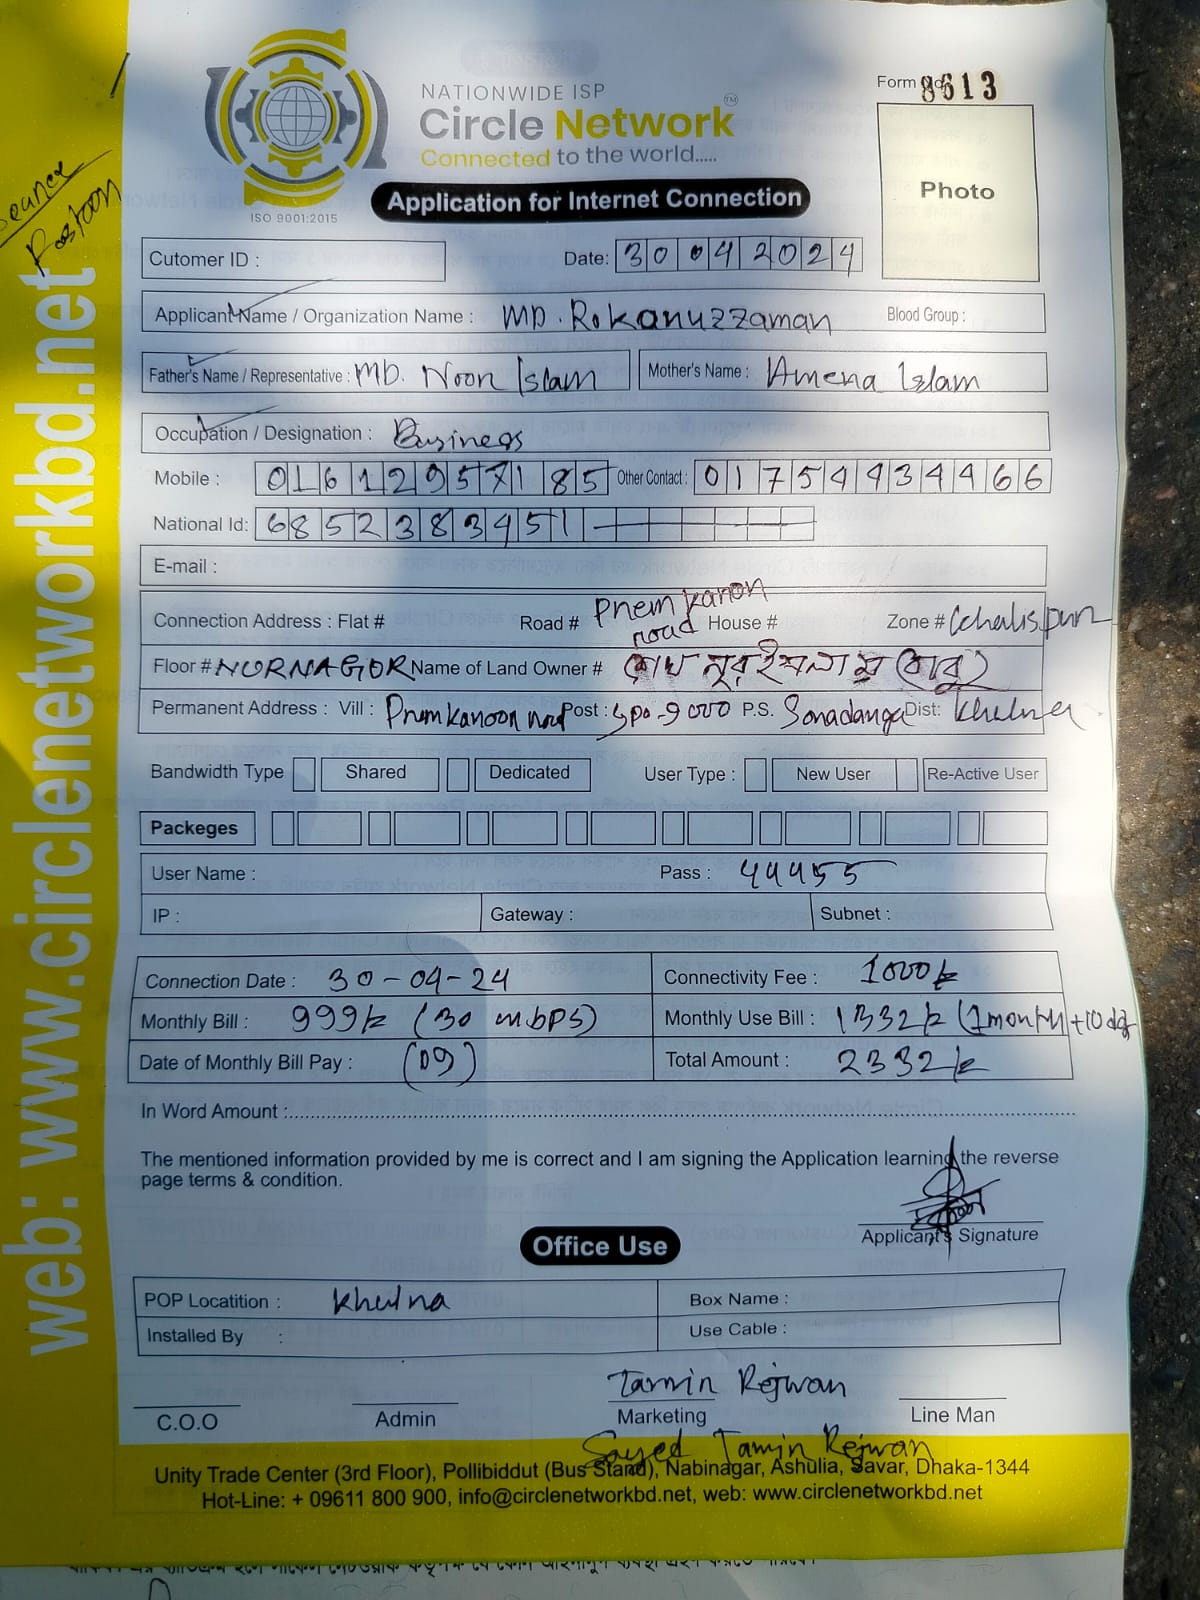 NATIONWIDE ISP
Circle Network™
Connected to the world.....
ISO 9001:2015
Form No 8613
Photo
Application for Internet Connection
Postoon
Cutomer ID :
Date: 30 04 2024
Applicant Name / Organization Name : MD. Rokanuzzaman Blood Group :
Father's Name / Representative : MD. Noor Islam Mother's Name : Amena Islam
Occupation / Designation : Business
Mobile : 01612957185 Other Contact : 01754434466
National Id: 6852383451
E-mail :
Connection Address : Flat # Road # Premkanon road House # Zone # Khalispur
Floor # NURNAGOR Name of Land Owner # শেখ নুর ইসলাম (বাবু)
Permanent Address : Vill : Premkanoon road Post : GPO-9000 P.S. Sonadanga Dist: Khulna
Bandwidth Type Shared Dedicated User Type : New User Re-Active User
Packeges
User Name : Pass : 44455
IP : Gateway : Subnet :
Connection Date : 30-04-24 Connectivity Fee : 1000/=
Monthly Bill : 999/= (30 mbps) Monthly Use Bill : 1332/= (1 month +10 day
Date of Monthly Bill Pay : (09) Total Amount : 2332/=
In Word Amount :
The mentioned information provided by me is correct and I am signing the Application learning the reverse
page terms & condition.
Applicant's Signature
Office Use
POP Locatition : Khulna Box Name :
Installed By : Use Cable :
Tamin Rejwan
C.O.O Admin Marketing Line Man
Sayed Tamin Rejwan
Unity Trade Center (3rd Floor), Pollibiddut (Bus Stand), Nabinagar, Ashulia, Savar, Dhaka-1344
Hot-Line: + 09611 800 900, info@circlenetworkbd.net, web: www.circlenetworkbd.net
web: www.circlenetworkbd.net